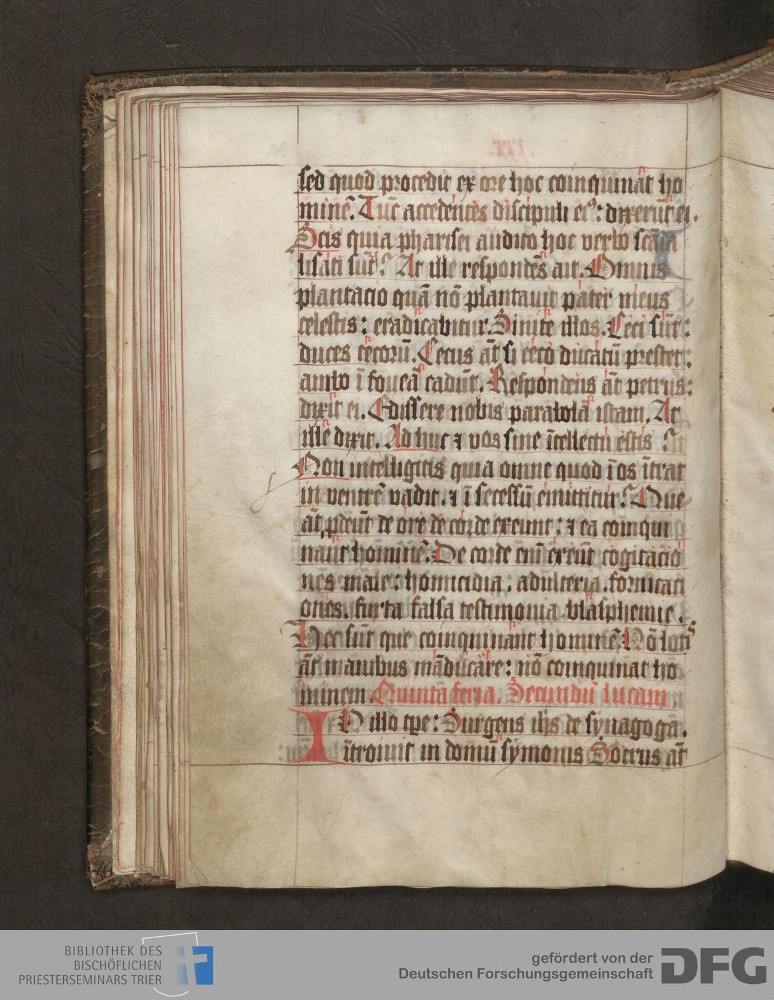 sed quod procedit ex ore hoc coinquinat ho
minē. Tūc accedentes discipuli eiꝰ: dixerūt ei.
Scis quia pharisei audito hoc verbo scāda
lisati sūt? At ille respondēs ait. Omnis
plantacio quā nō plantavit pater meus
celestis: eradicabitur. Sinite illos. Ceci sūt:
duces cecorū. Cecus āt si ceco ducatū prestet:
ambo ī foveā cadūt. Respondens āt petrus:
dixit ei. Edissere nobis parabolā istam. At
ille dixit. Ad huc ⁊ vos sine ītellectu estis?
Non intelligitis quia omne quod ī os ītrat
in ventrē vadit. ⁊ ī secessū emittitur? Que
āt ꝓcedūt de ore de corde exeunt: ⁊ ea coinqui
nāt hominē. De corde enī exeūt cogitacio
nes male: homicidia. adulteria. fornicati
ones. furta falsa testimonia blasphemie.
Hec sūt que coinquinant hominē. Nō lotis
āt manibus māducare: nō coinquinat ho
minem. Quinta feria. Secundū lucam.
IN illo tp̄e: Surgens ihs de synagoga.
ītroivit in domū symonis Socrus āt
BIBLIOTHEK DES
BISCHÖFLICHEN
PRIESTERSEMINARS TRIER
gefördert von der
Deutschen Forschungsgemeinschaft
DFG